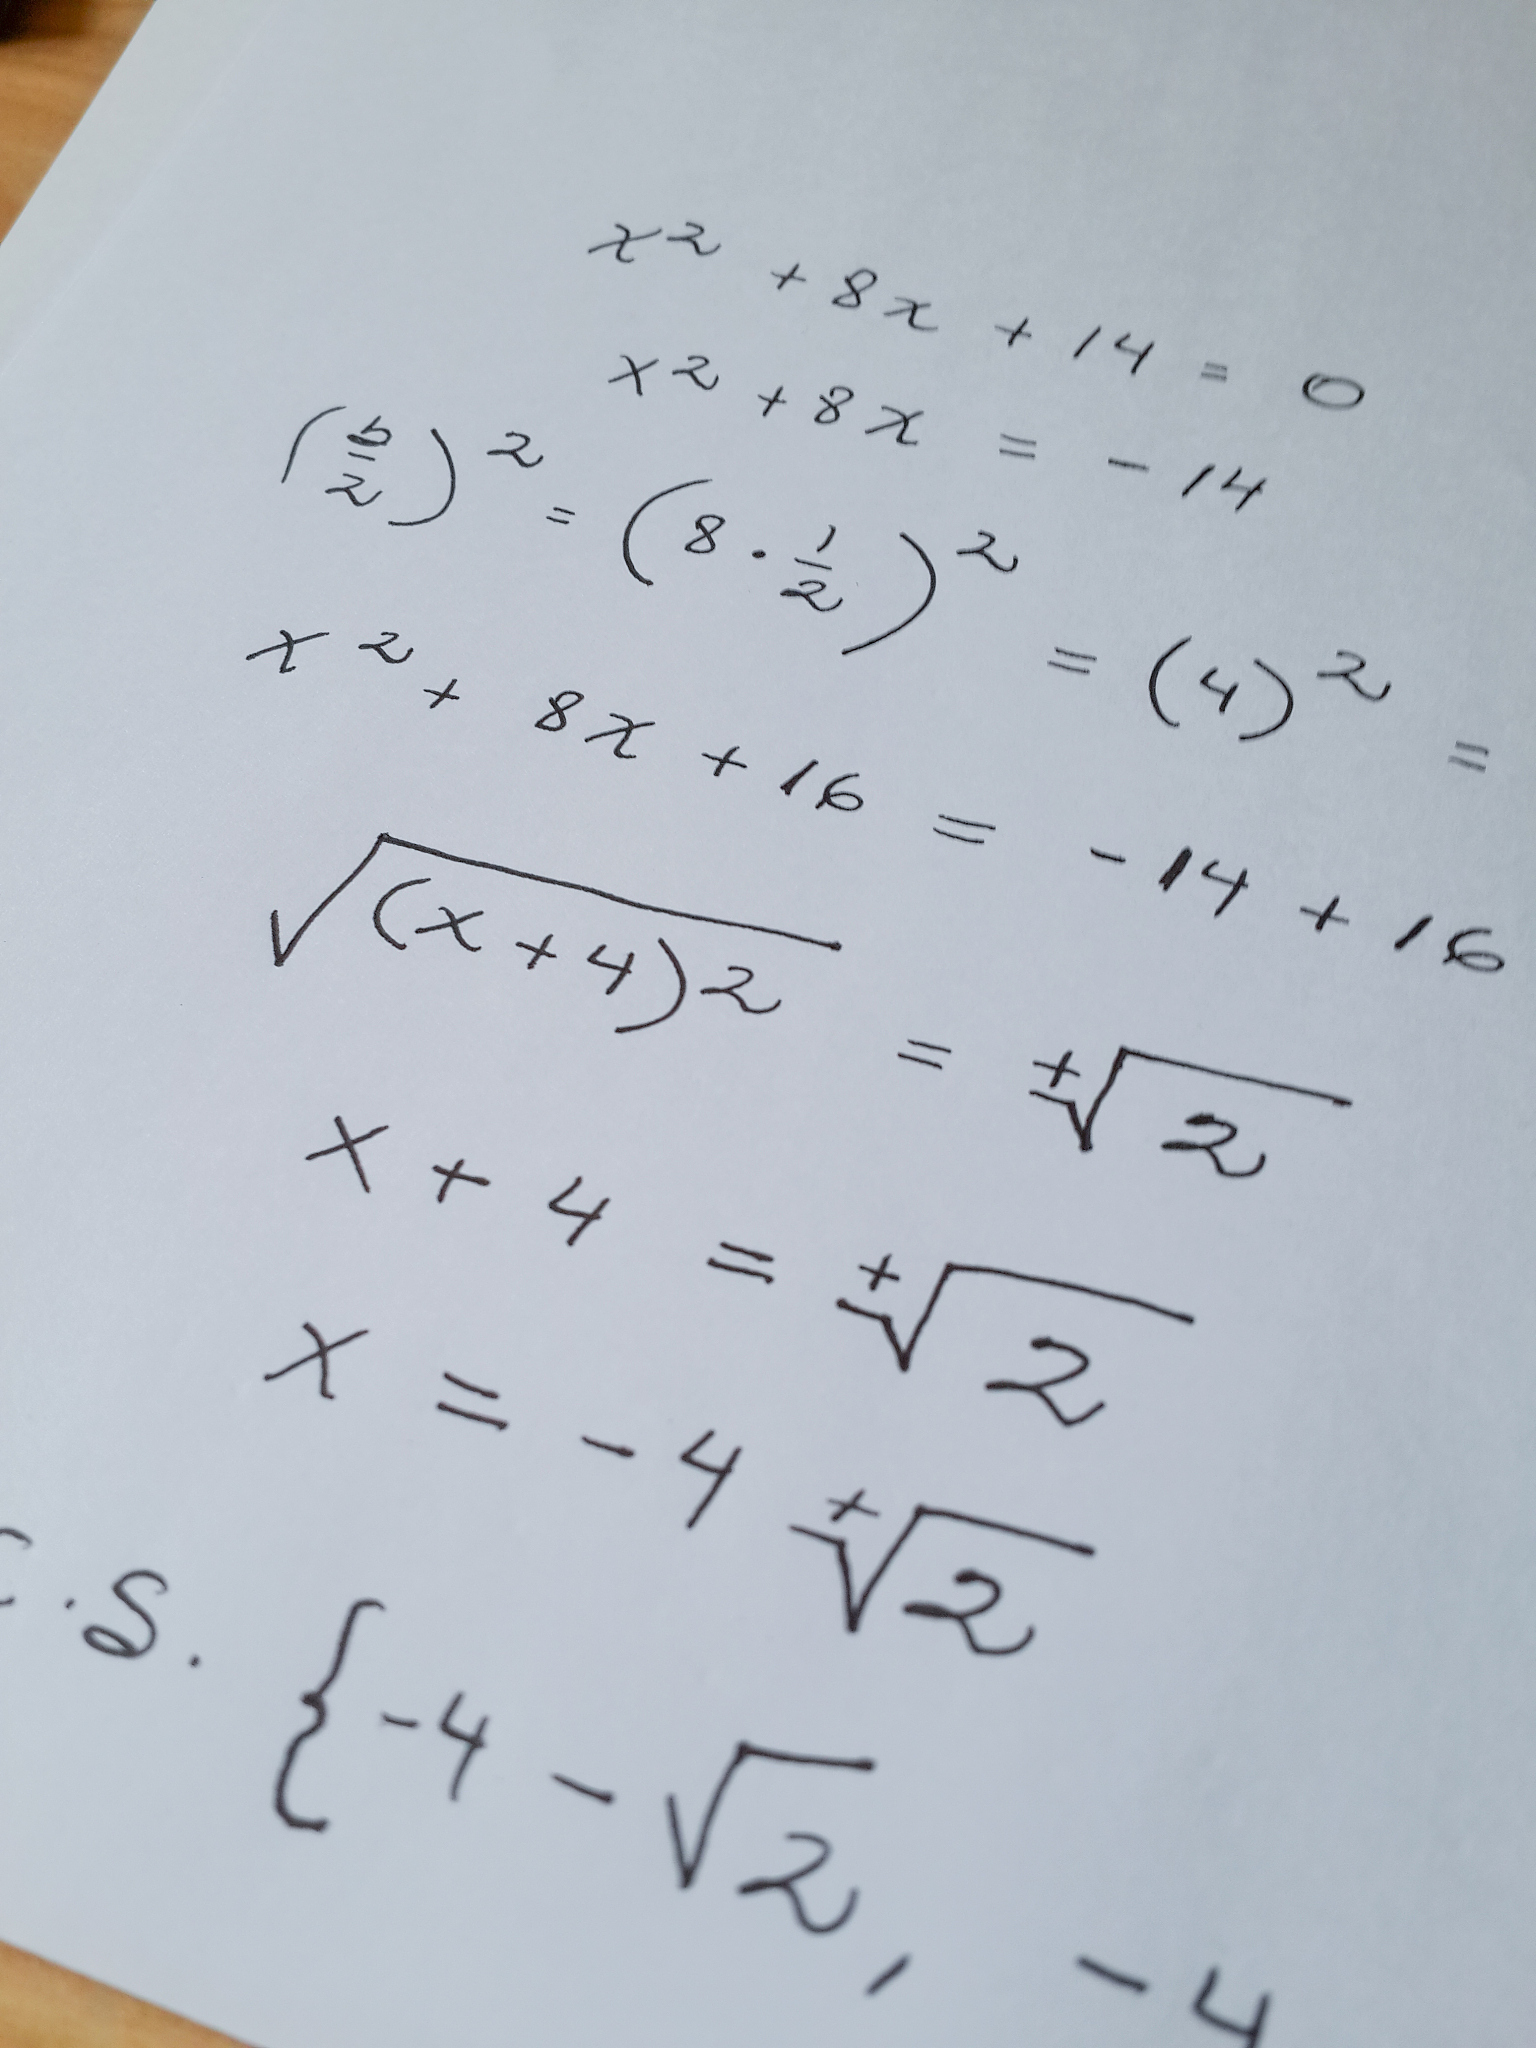 x² + 8x + 14 = 0
x² + 8x = - 14
(b/2)² = (8 · 1/2)² = (4)² =
x² + 8x + 16 = - 14 + 16
√(x + 4)² = ±√2
x + 4 = ±√2
x = - 4 ±√2
.S. {-4 - √2, -4